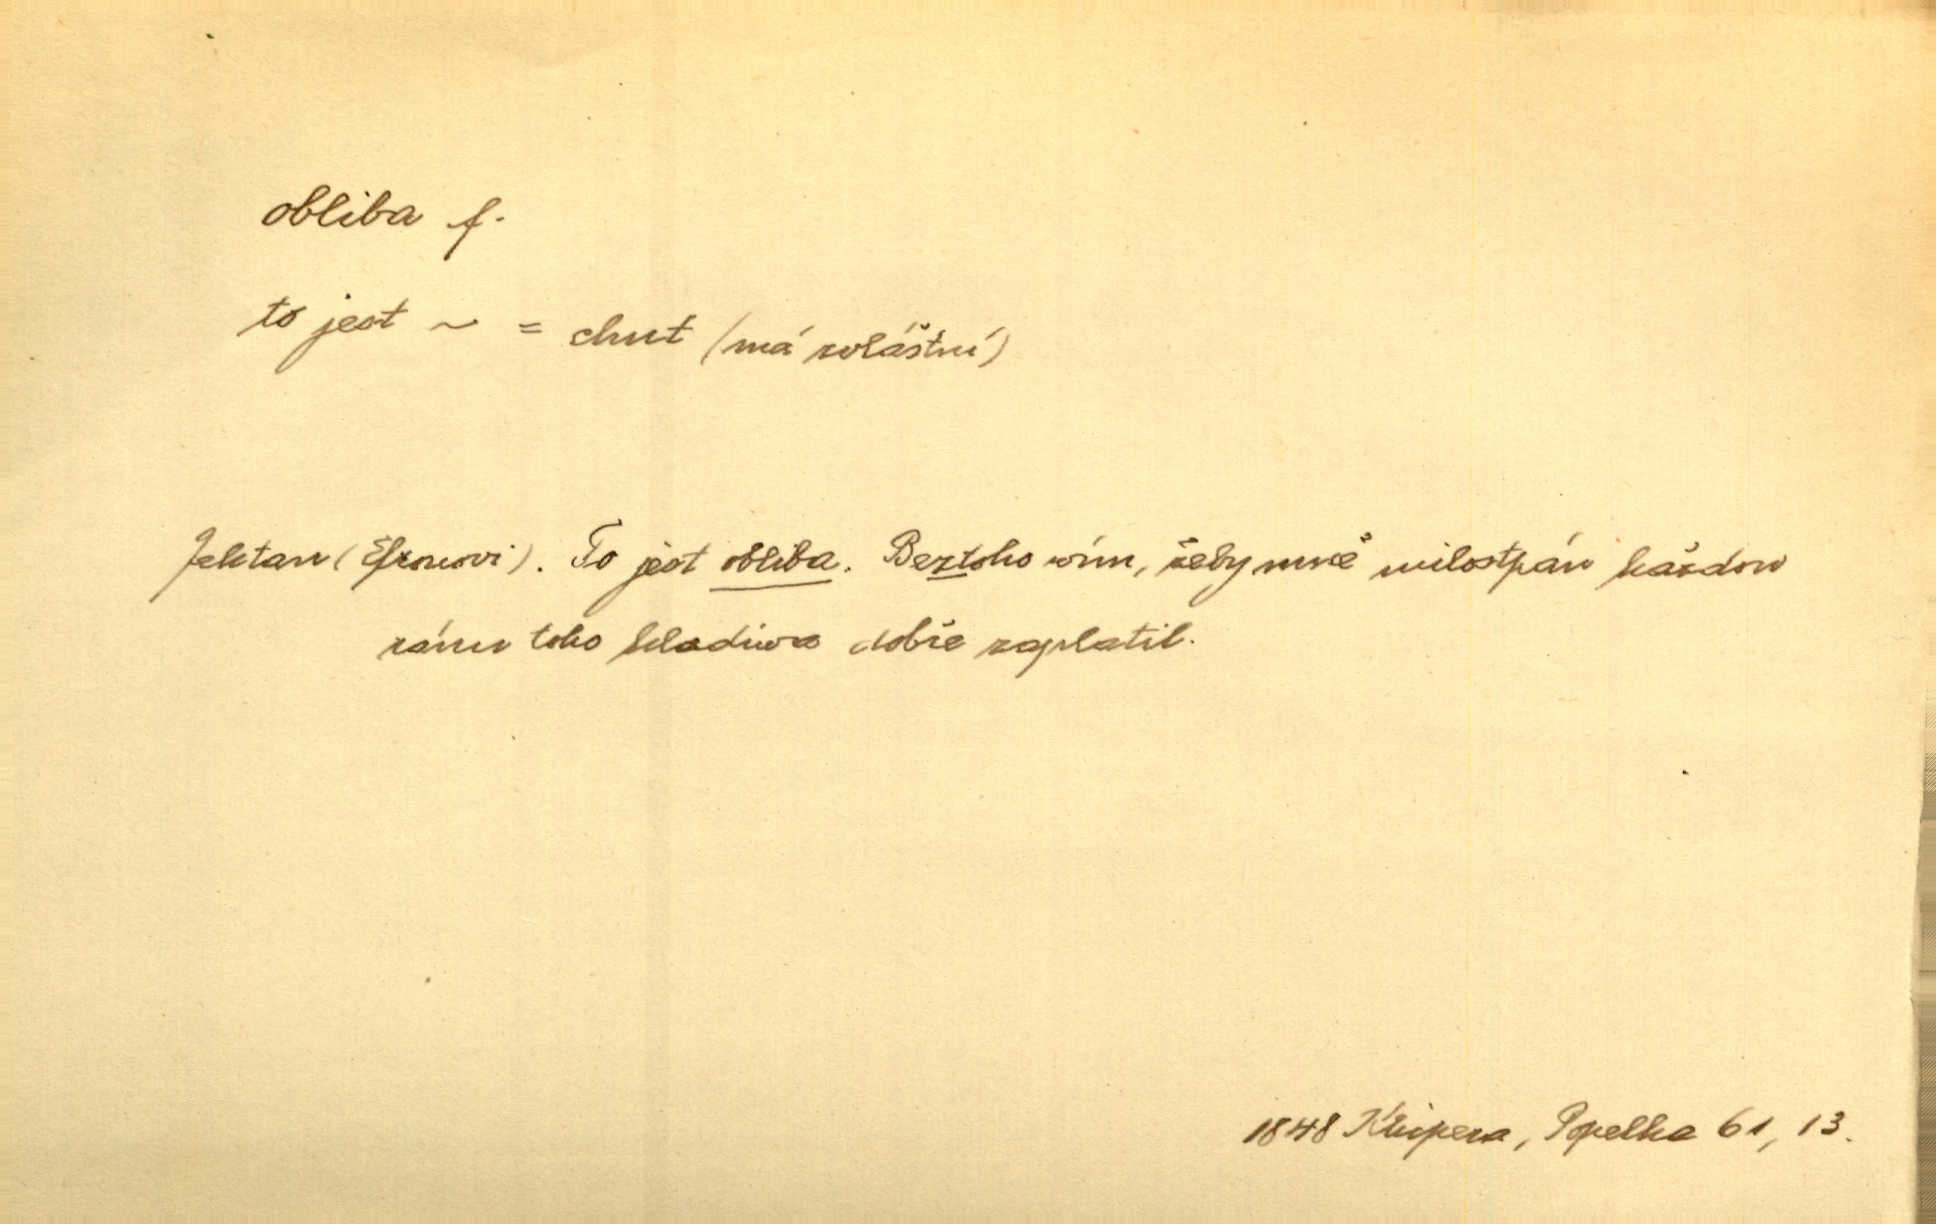 obliba f.
to jest ~ = chuť (má zvláštní)
Jektan (Efronovi). To jest obliba. Beztoho vím, žeby mně milostpán každou
ránu toho kladiva dobře zaplatil.
1848 Klicpera, Popelka 61, 13.